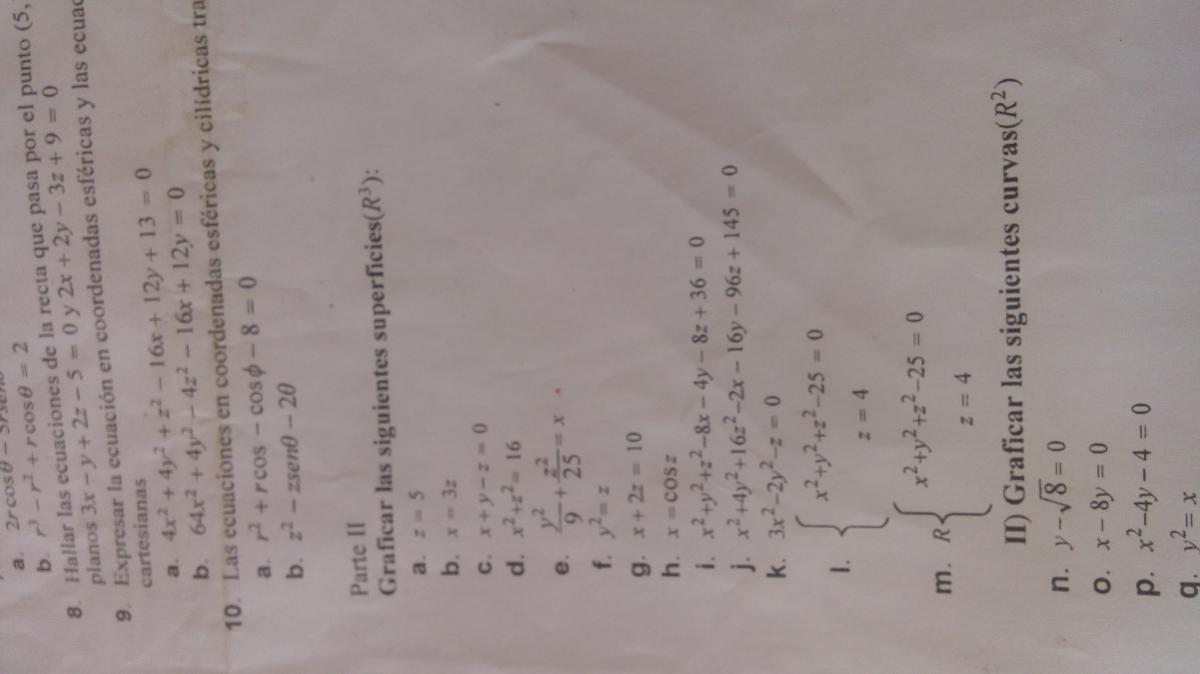 a. 2rcosθ − 5rsenθ
b. r³ − r² + rcosθ = 2
8. Hallar las ecuaciones de la recta que pasa por el punto (5,
planos 3x − y + 2z − 5 = 0 y 2x + 2y − 3z + 9 = 0
9. Expresar la ecuación en coordenadas esféricas y las ecuac
cartesianas
a. 4x² + 4y² + z² − 16x + 12y + 13 = 0
b. 64x² + 4y² − 4z² − 16x + 12y = 0
10. Las ecuaciones en coordenadas esféricas y cilídricas tra
a. r² + rcos − cosϕ − 8 = 0
b. z² − zsenθ − 2θ
Parte II
Graficar las siguientes superficies(R³):
a. z = 5
b. x = 3z
c. x + y − z = 0
d. x²+z² = 16
e. y²/9 + z²/25 = x
f. y² = z
g. x + 2z = 10
h. x = cos z
i. x²+y²+z²−8x − 4y − 8z + 36 = 0
j. x²+4y²+16z²−2x − 16y − 96z + 145 = 0
k. 3x²−2y²−z = 0
l. { x²+y²+z²−25 = 0
z = 4
m. R { x²+y²+z²−25 = 0
z = 4
II) Graficar las siguientes curvas(R²)
n. y − √8 = 0
o. x − 8y = 0
p. x²−4y − 4 = 0
q. y² = x